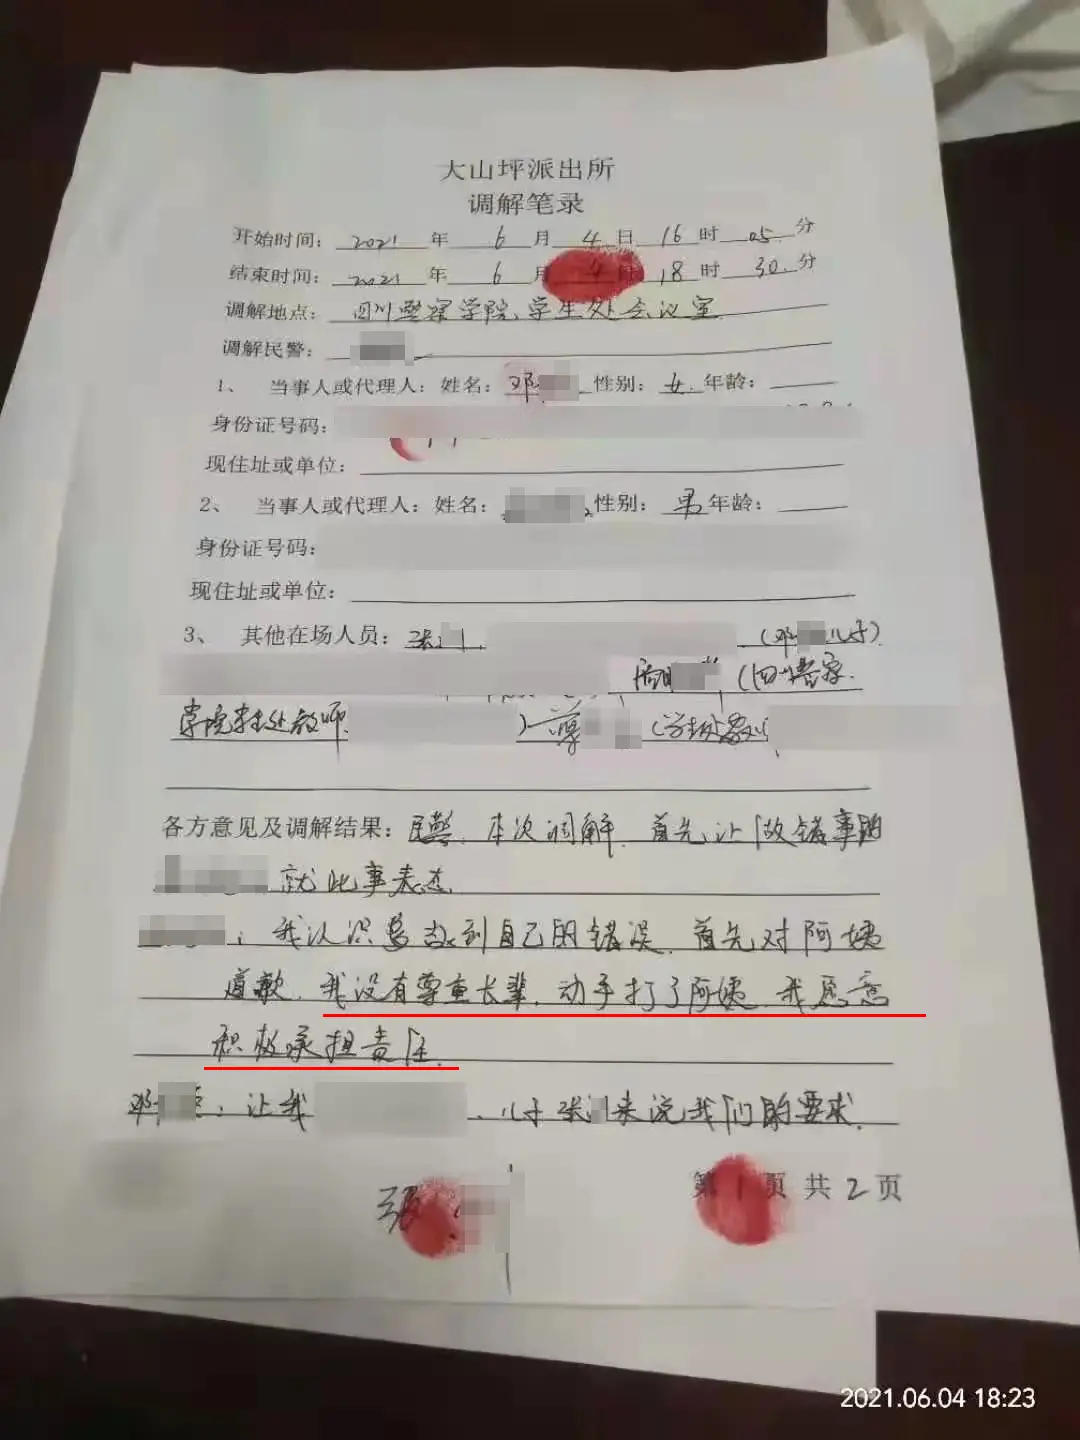 大山坪派出所
调解笔录
开始时间： 2021 年 6 月 4 日 16 时 05 分
结束时间： 2021 年 6 月 4 日 18 时 30 分
调解地点： 四川警察学院、学生处会议室
调解民警：
1、 当事人或代理人：姓名：邓 性别：女 年龄：
身份证号码：
现住址或单位：
2、 当事人或代理人：姓名： 性别：男 年龄：
身份证号码：
现住址或单位：
3、 其他在场人员：张 （邓 儿子）
（四川警察
学院学生处教师 ） （学生处
各方意见及调解结果：民警：本次调解，首先让做错事的
就此事表态
：我认识到自己的错误，首先对阿姨
道歉，我没有尊重长辈，动手打了阿姨，我愿意
积极承担责任。
邓 ：让我 、儿子张 来说我们的要求。
张
第 1 页 共 2 页
2021.06.04 18:23